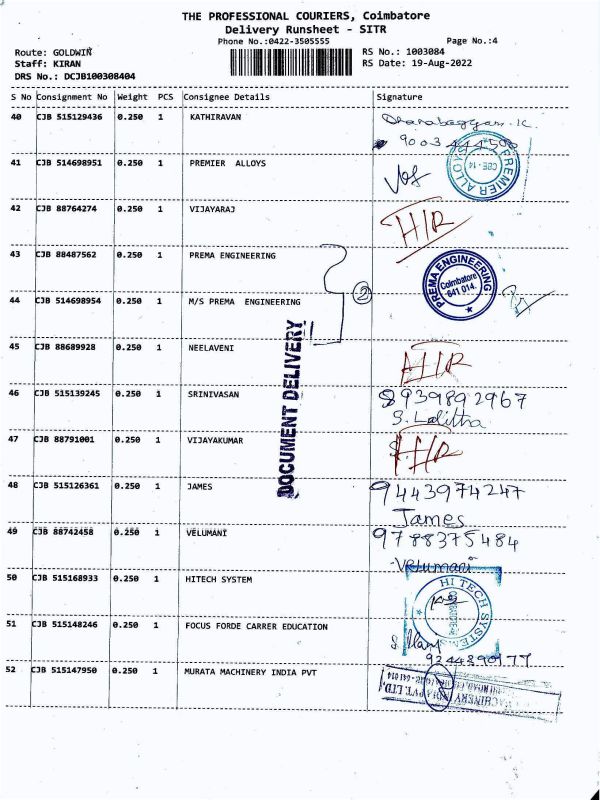 THE PROFESSIONAL COURIERS, Coimbatore
Delivery Runsheet - SITR
Phone No.:0422-3505555 Page No.:4
Route: GOLDWIN RS No.: 1003084
Staff: KIRAN RS Date: 19-Aug-2022
DRS No.: DCJB100308404
S No Consignment No Weight PCS Consignee Details Signature
40 CJB 515129436 0.250 1 KATHIRAVAN
41 CJB 514698951 0.250 1 PREMIER ALLOYS PREMIER ALLOYS CBE - 14
42 CJB 88764274 0.250 1 VIJAYARAJ H/R
43 CJB 88487562 0.250 1 PREMA ENGINEERING PREMA ENGINEERING Coimbatore 641 014.
44 CJB 514698954 0.250 1 M/S PREMA ENGINEERING 2
DOCUMENT DELIVERY
45 CJB 88689928 0.250 1 NEELAVENI H/R
46 CJB 515139245 0.250 1 SRINIVASAN 8939892967
S. Lalitha
47 CJB 88791001 0.250 1 VIJAYAKUMAR H/R
48 CJB 515126361 0.250 1 JAMES 9443974247
James
49 CJB 88742458 0.250 1 VELUMANI 9788375484
Velumani
50 CJB 515168933 0.250 1 HITECH SYSTEM HI TECH SYSTEMS
51 CJB 515148246 0.250 1 FOCUS FORDE CARRER EDUCATION
9244390177
52 CJB 515147950 0.250 1 MURATA MACHINERY INDIA PVT